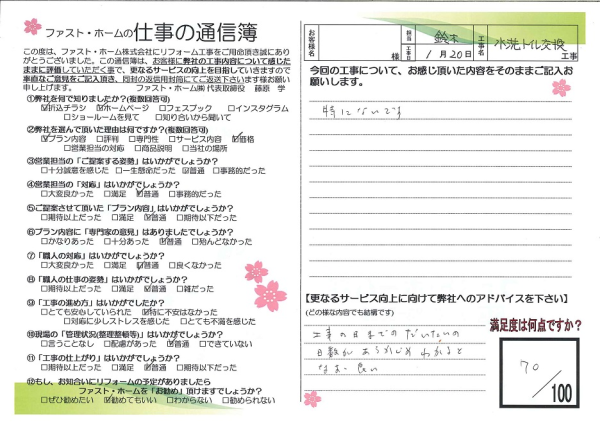 ファスト・ホームの仕事の通信簿
この度は、ファスト・ホーム株式会社にリフォーム工事をご用命頂き誠にあり
がとうございました。この通信簿は、お客様に弊社の工事内容について感じた
ままに評価していただく事で、更なるサービスの向上を目指していきますので
率直なご意見をご記入頂き、同封の返信用封筒にてご返送下さいます様お願い
申し上げます。 ファスト・ホーム㈱ 代表取締役 藤原 学
①弊社を何で知りましたか?(複数回答可)
☑折込チラシ ☑ホームページ □フェスブック □インスタグラム
□ショールームを見て □知り合いから聞いて
②弊社を選んで頂いた理由は何ですか?(複数回答可)
☑プラン内容 □評判 □専門性 □サービス内容 ☑価格
□営業担当の対応 □商品説明 □当社の場所
③営業担当の「ご提案する姿勢」はいかがでしょうか?
□十分誠意を感じた □一生懸命だった ☑普通 □事務的だった
④営業担当の「対応」はいかがでしょうか?
□大変良かった □満足 ☑普通 □事務的だった
⑤ご提案させて頂いた「プラン内容」はいかがでしょうか?
□期待以上だった □満足 ☑普通 □期待以下だった
⑥プラン内容に「専門家の意見」はありましたでしょうか?
□かなりあった □十分あった ☑普通 □殆んどなかった
⑦「職人の対応」はいかがでしょうか?
□大変良かった □満足 ☑普通 □良くなかった
⑧「職人の仕事の姿勢」はいかがでしょうか?
□期待以上だった □満足 ☑普通 □雑だった
⑨「工事の進め方」はいかがでしたか?
□とても安心していられた ☑特に不安はなかった
□対応に少しストレスを感じた □とても不満を感じた
⑩現場の「管理状況(整理整頓等)」はいかがでしょうか?
□言うことなし □配慮があった ☑普通 □できていない
⑪「工事の仕上がり」はいかがでしょうか?
□期待以上だった □満足 ☑普通 □期待以下だった
⑫もし、お知合いにリフォームの予定がありましたら
ファスト・ホームを「お勧め」頂けますでしょうか?
□ぜひ勧めたい ☑勧めてもいい □わからない □勧められない
お客様名 様 担当 鈴木 工事日 1月20日 工事名 水洗トイレ交換 工事
今回の工事について、お感じ頂いた内容をそのままご記入お
願いします。
特にないです
【更なるサービス向上に向けて弊社へのアドバイスを下さい】
(どの様な内容でも結構です)
工事の日までのだいたいの
日数があらかじめわかると
なお良い
満足度は何点ですか?
70
/100